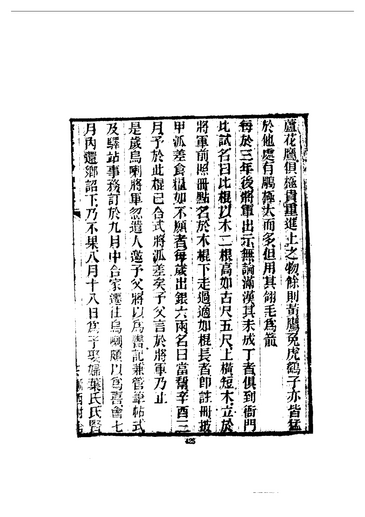 蘆花鷹俱極貴重進上之物餘則黃鷹兔虎鷂子亦皆猛
於他處有鵰極大而多但用其翎毛爲箭
每於三年後將軍出示無論滿漢其未成丁者俱到衙門
比試名曰比棍以木二根高如古尺五尺上橫短木立於
將軍前照冊點名於木棍下走過適如棍長者卽註冊披
甲派差食糧如不願者每歲出銀六兩名曰當幫辛酉三
月予於此棍已合式將派差矣予父言於將軍乃止
是歲烏喇將軍忽遣人邀予父將以爲書記兼管筆帖式
及驛站事務訂於九月中合家遷往烏喇願以爲喜會七
月內還鄉詔下乃不果八月十八日爲予娶婦葉氏氏賢
425